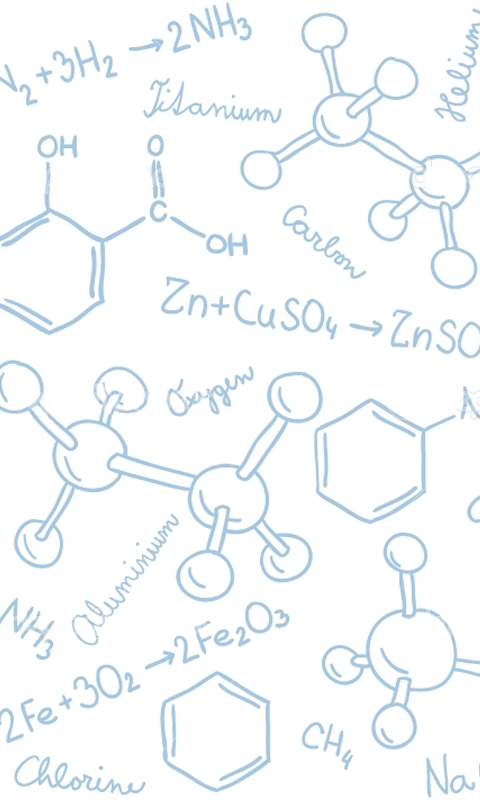 N₂+3H₂ →2NH₃
Helium
Titanium
OH
O
C
OH
Carbon
Zn+CuSO₄ →ZnSO
Oxygen
N
Aluminium
NH₃
2Fe+3O₂ →2Fe₂O₃
CH₄
Chlorine
Na